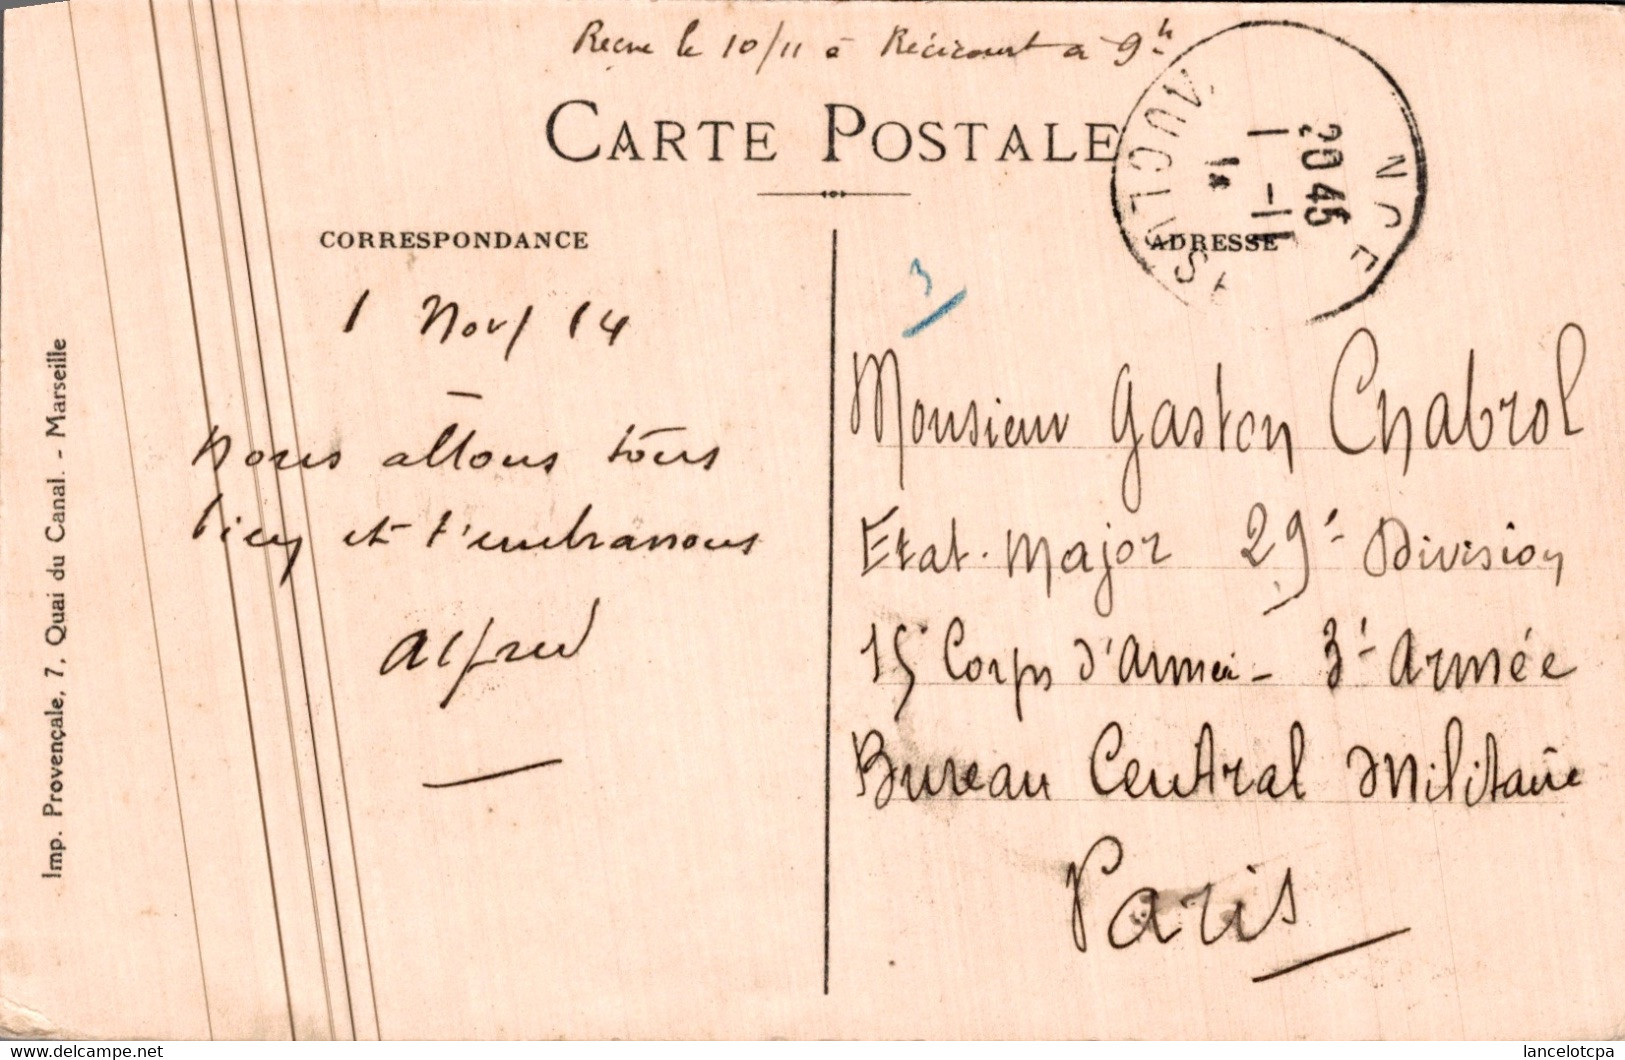 Reçue le 10/11 à Récicourt à 9h
CARTE POSTALE
CORRESPONDANCE
ADRESSE
VAUCLUSE
20 45
1 - 11
14
3
1 Nov/ 14
Nous allons tous
bien et t'embrassons
Alfred
Monsieur Gaston Chabrol
Etat-Major 29e Division
15e Corps d'Armée - 3e Armée
Bureau Central Militaire
Paris
Imp. Provençale, 7, Quai du Canal. - Marseille
delcampe.net
lancelotcpa